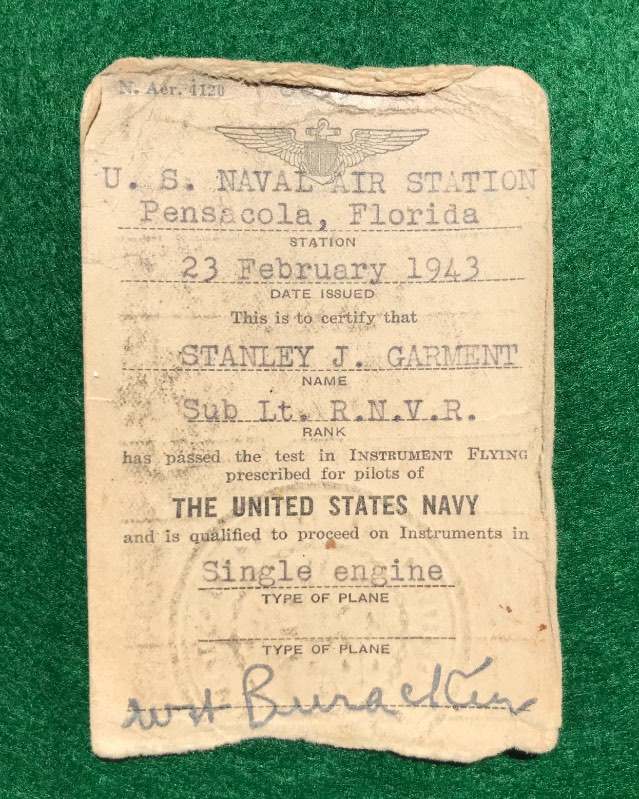 N. Aer. 4120
U. S. NAVAL AIR STATION
Pensacola, Florida
STATION
23 February 1943
DATE ISSUED
This is to certify that
STANLEY J. GARMENT
NAME
Sub Lt. R.N.V.R.
RANK
has passed the test in INSTRUMENT FLYING
prescribed for pilots of
THE UNITED STATES NAVY
and is qualified to proceed on Instruments in
Single engine
TYPE OF PLANE
TYPE OF PLANE
WH Buracker